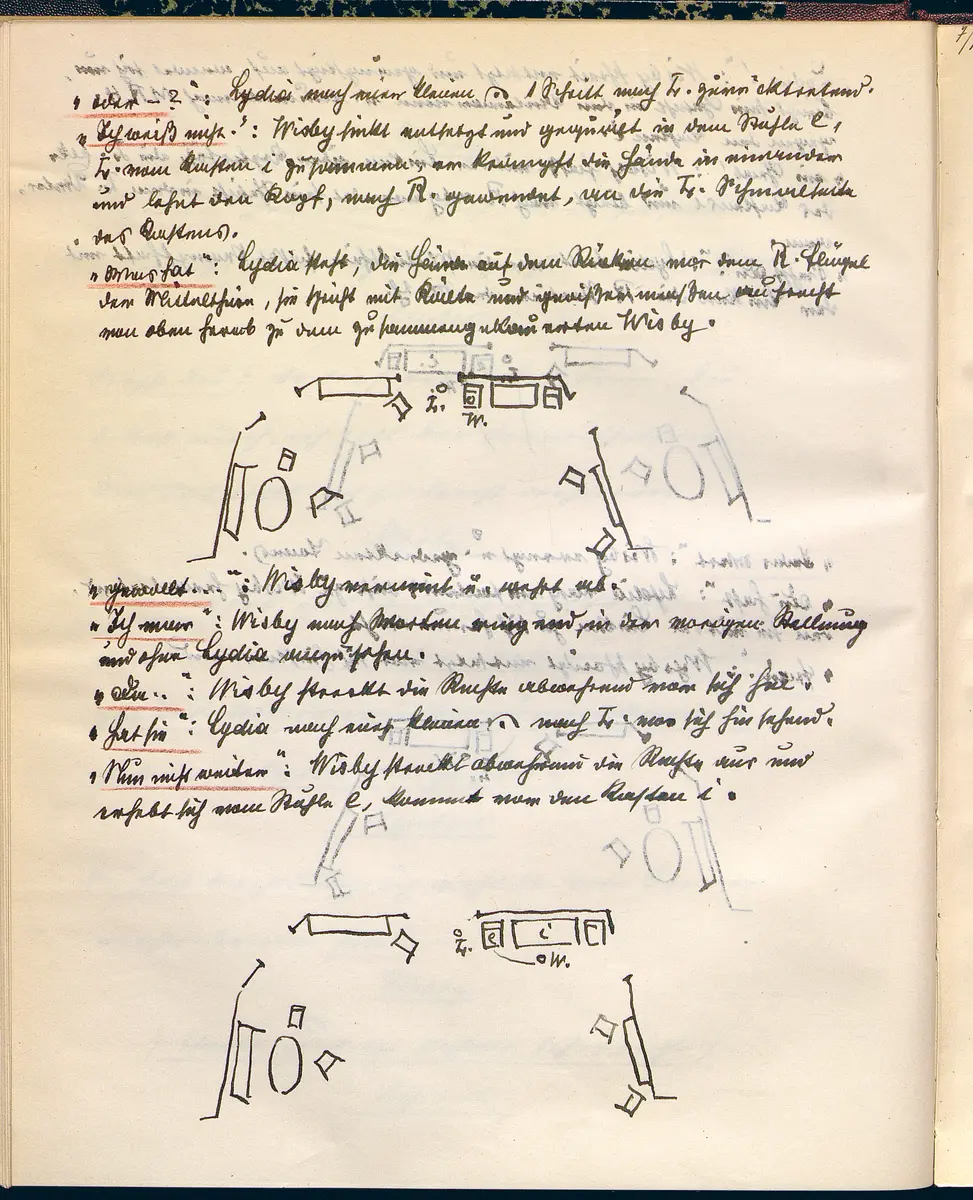 „oder – ?": Lydia nach einer kleinen ⌒ 1 Schritt nach L. zurücktretend.
„Ich weiß nicht.": Wisby sinkt entsetzt und gequält in dem Stuhle e,
L. vom Kasten i zusammen, er krampft die Hände in einander
und lehnt den Kopf, nach R. gewendet, an die L. Schmalseite
des Kastens.
„Was hat": Lydia steht, die Hände auf dem Rücken vor dem R. Flügel
der Mittelthüre, sie spricht mit Kälte und gewissermassen aufrecht
von oben herab zu dem zusammengekauerten Wisby.
L.
e
W.
„gewollt...": Wisby verneint u. wehrt ab.
„Ich war": Wisby nach Worten ringend, in der vorigen Stellung
und ohne Lydia anzusehen.
„Du..": Wisby streckt die Rechte abwehrend vor sich hin.
„Hat sie": Lydia nach einer kleinen ⌒ nach L. vor sich hin sehend.
„Nun nicht weiter": Wisby streckt abwehrend die Rechte aus und
erhebt sich vom Stuhle e, kommt vor den Kasten i.
L.
e
i
W.
7/